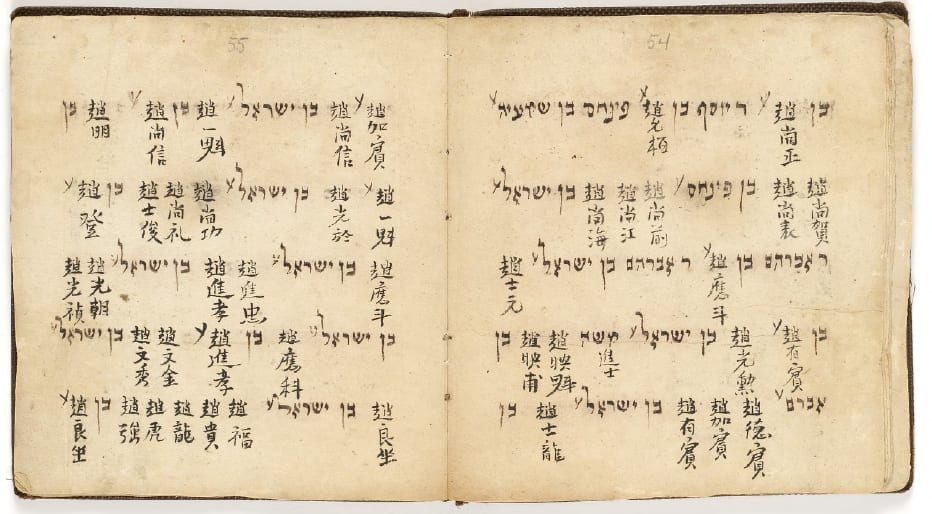 54
בן 趙尚正 ר יוסף בן 趙 פינחס בן ישעיה
趙尚賀 趙尚表 בן פינחס 趙尚前 趙尚江 趙尚海 בן ישראל
ר אברהם בן 趙應斗 ר אברהם בן ישראל 趙士元
בן 趙有賓 趙光勳 בן ישראל משה 進士 趙映魁 趙映甫 בן
אברם 趙德賓 趙加賓 趙有賓 בן ישראל 趙士龍 בן
55
趙加賓 趙尚信 בן ישראל 趙一魁 בן 趙尚信 趙明 בן
趙一魁 趙光於 בן ישראל 趙尚功 趙尚礼 趙士俊 בן 趙登
趙應斗 בן ישראל 趙進忠 趙進孝 בן ישראל 趙光朝 趙光禎
בן ישראל 趙應科 בן 趙進孝 趙文金 趙文秀 בן ישראל
趙良坐 בן ישראל 趙福 趙貴 趙龍 趙虎 趙強 בן 趙良坐